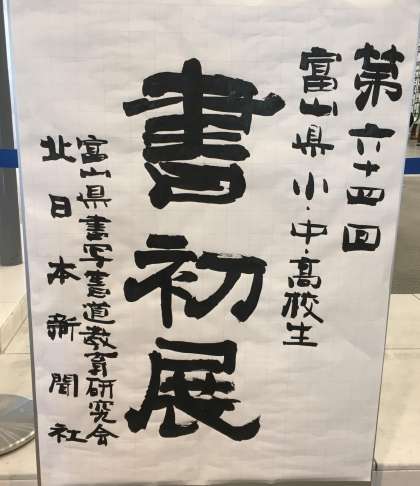 第六十四回
富山県小・中・高校生
書初展
富山県書写書道教育研究会
北日本新聞社